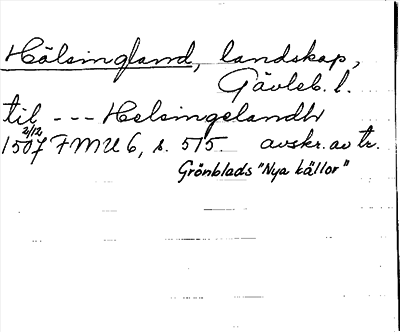 Hälsingland, landskap,
Gävleb. l.
til --- Helsingelandh
2/12
1507 FMU 6, s. 515. avskr. av tr.
Grönblads "Nya källor"